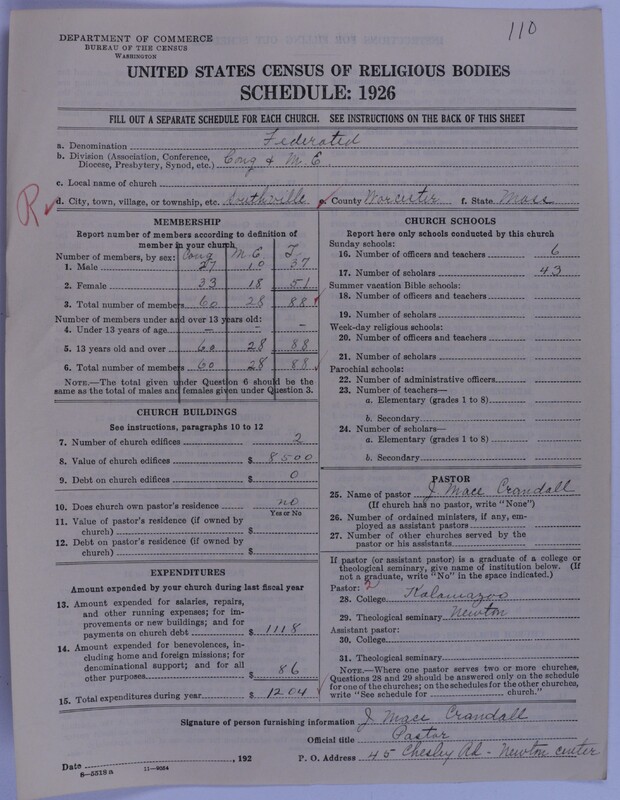 110
DEPARTMENT OF COMMERCE
BUREAU OF THE CENSUS
WASHINGTON
UNITED STATES CENSUS OF RELIGIOUS BODIES
SCHEDULE: 1926
FILL OUT A SEPARATE SCHEDULE FOR EACH CHURCH. SEE INSTRUCTIONS ON THE BACK OF THIS SHEET
a. Denomination Federated
b. Division (Association, Conference, Diocese, Presbytery, Synod, etc.) Cong & M. E
c. Local name of church
R d. City, town, village, or township, etc. Southville e. County Worcester f. State Mass
MEMBERSHIP
Report number of members according to definition of
member in your church
Number of members, by sex: Cong M. E T
1. Male 27 10 37
2. Female 33 18 51
3. Total number of members 60 28 88
Number of members under and over 13 years old:
4. Under 13 years of age – – –
5. 13 years old and over 60 28 88
6. Total number of members 60 28 88
NOTE.—The total given under Question 6 should be the
same as the total of males and females given under Question 3.
CHURCH BUILDINGS
See instructions, paragraphs 10 to 12
7. Number of church edifices 2
8. Value of church edifices $ 8500
9. Debt on church edifices $ 0
10. Does church own pastor's residence no
Yes or No
11. Value of pastor's residence (if owned by
church) $
12. Debt on pastor's residence (if owned by
church) $
EXPENDITURES
Amount expended by church during last fiscal year
13. Amount expended for salaries, repairs,
and other running expenses; for im-
provements or new buildings; and for
payments on church debt $ 1118
14. Amount expended for benevolences, in-
cluding home and foreign missions; for
denominational support; and for all
other purposes $ 86
15. Total expenditures during year $ 1204
CHURCH SCHOOLS
Report here only schools conducted by this church
Sunday schools:
16. Number of officers and teachers 6
17. Number of scholars 43
Summer vacation Bible schools:
18. Number of officers and teachers
19. Number of scholars
Week-day religious schools:
20. Number of officers and teachers
21. Number of scholars
Parochial schools:
22. Number of administrative officers
23. Number of teachers—
a. Elementary (grades 1 to 8)
b. Secondary
24. Number of scholars—
a. Elementary (grades 1 to 8)
b. Secondary
PASTOR
25. Name of pastor J Mace Crandall
(If church has no pastor, write "None")
26. Number of ordained ministers, if any, em-
ployed as assistant pastors
27. Number of other churches served by the
pastor or his assistants
If pastor (or assistant pastor) is a graduate of a college or
theological seminary, give name of institution below. (If
not a graduate, write "No" in the space indicated.)
Pastor: 2
28. College Kalamazoo
29. Theological seminary Newton
Assistant pastor:
30. College
31. Theological seminary
NOTE.—Where one pastor serves two or more churches,
Questions 28 and 29 should be answered only on the schedule
for one of the churches; on the schedules for the other churches,
write "See schedule for church."
Signature of person furnishing information J Mace Crandall
Official title Pastor
Date , 192 P. O. Address 45 Chesley Rd - Newton center
8-5518 a 11-9034